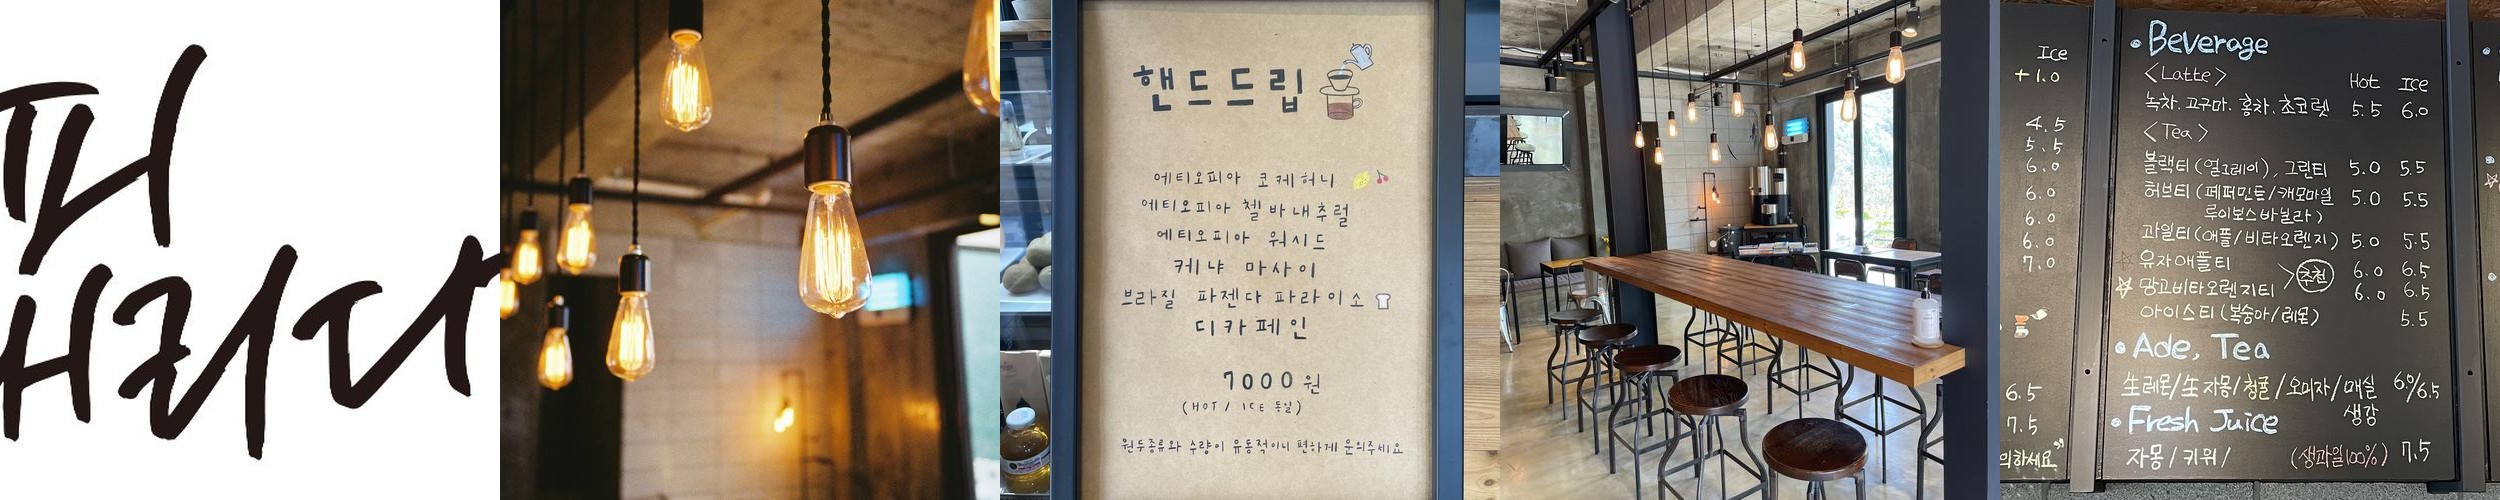 핸드드립
에티오피아 코케허니
에티오피아 첼바내추럴
에티오피아 워시드
케냐 마사이
브라질 파젠다 파라이소
디카페인
7000원
(HOT / ICE 동일)
원두종류와 수량이 유동적이니 편하게 문의주세요
Ice
+1.0
4.5
5.5
6.0
6.0
6.0
6.0
7.0
6.5
7.5
의하세요"
Beverage
<Latte> Hot Ice
녹차. 고구마. 홍차. 초코렛 5.5 6.0
<Tea>
블랙티(얼그레이), 그린티 5.0 5.5
허브티(페퍼민트/캐모마일 5.0 5.5
루이보스바닐라)
과일티(애플/비타오렌지) 5.0 5.5
유자애플티 6.0 6.5
추천
망고비타오렌지티 6.0 6.5
아이스티(복숭아/레몬) 5.5
Ade, Tea
生레몬/生자몽/청귤/오미자/매실 6.0/6.5
생강
Fresh Juice
자몽/키위/ (생과일100%) 7.5